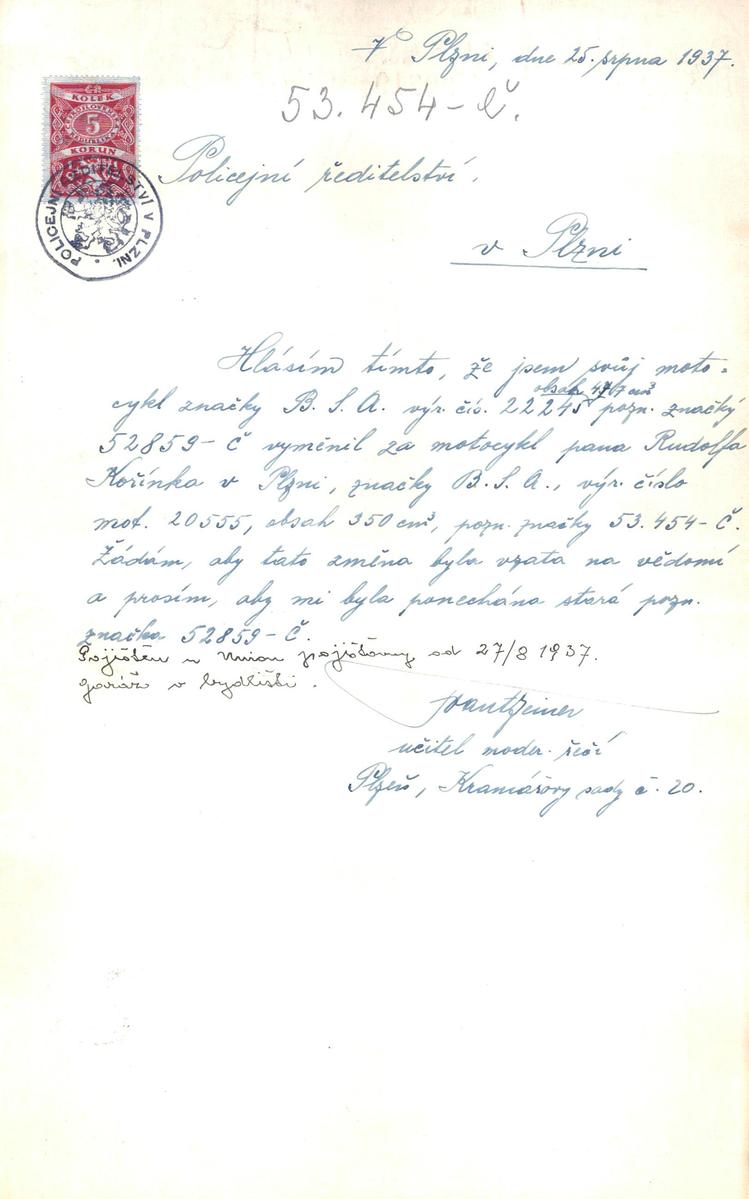 V Plzni, dne 25. srpna 1937.
53.454-Č.
KOLEK
5
KORUN
POLICEJNÍ ŘEDITELSTVÍ V PLZNI.
Policejní ředitelství.
v Plzni
Hlásím tímto, že jsem svůj moto-
obsah cm³
cykl značky B.S.A. výr. čís. 22245 pozn. značky
52859-Č vyměnil za motocykl pana Rudolfa
Kořínka v Plzni, značky B.S.A., výr. číslo
mot. 20555, obsah 350 cm³, pozn. značky 53.454-Č.
Žádám, aby tato změna byla vzata na vědomí
a prosím, aby mi byla ponechána stará pozn.
značka 52859-Č.
Pojištěn u Union pojišťovny od 27/8 1937.
garáž v bydlišti.
učitel moder. řečí
Plzeň, Kramářovy sady č. 20.